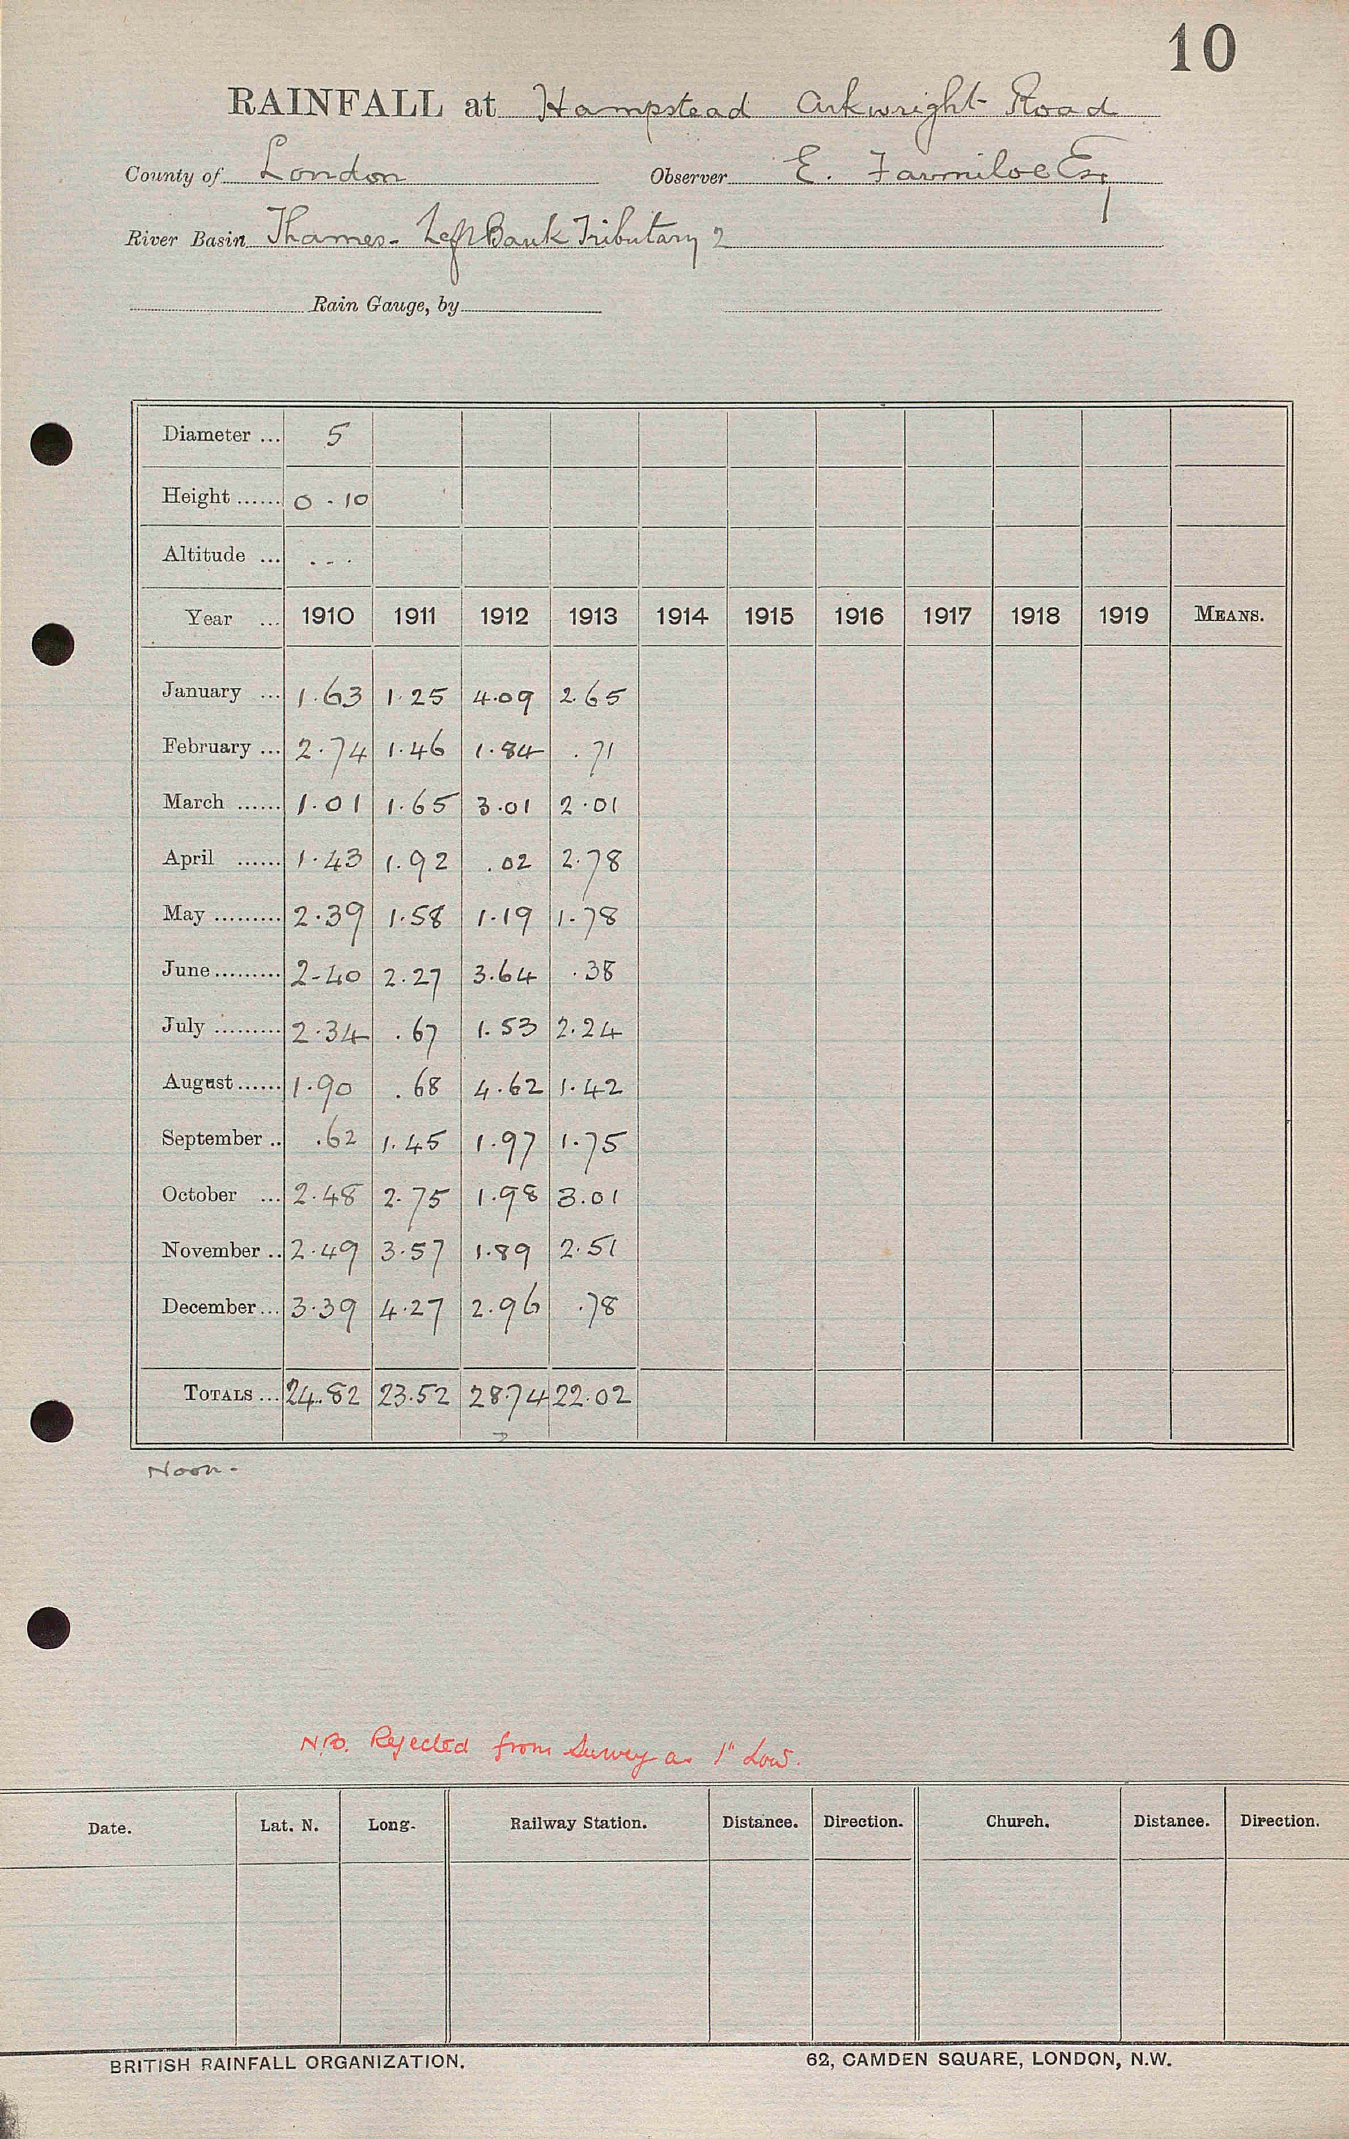 10
RAINFALL at Hampstead Arkwright Road
County of London Observer E. Farmiloe Esq
River Basin Thames - Left Bank Tributary 2
Rain Gauge, by
Diameter ... 5
Height ...... 0 - 10
Altitude ... ...
Year ... 1910 1911 1912 1913 1914 1915 1916 1917 1918 1919 MEANS.
January ... 1.63 1.25 4.09 2.65
February ... 2.74 1.46 1.84 .71
March ...... 1.01 1.65 3.01 2.01
April ...... 1.43 1.92 .02 2.78
May ......... 2.39 1.58 1.19 1.78
June ......... 2.40 2.27 3.64 .38
July ......... 2.34 .67 1.53 2.24
August ...... 1.90 .68 4.62 1.42
September .. .62 1.45 1.97 1.75
October ... 2.48 2.75 1.98 3.01
November .. 2.49 3.57 1.89 2.51
December ... 3.39 4.27 2.96 .78
TOTALS ... 24.82 23.52 28.74 22.02
Noon -
N.B. Rejected from Survey as 1" Low.
Date. Lat. N. Long. Railway Station. Distance. Direction. Church. Distance. Direction.
BRITISH RAINFALL ORGANIZATION. 62, CAMDEN SQUARE, LONDON, N.W.